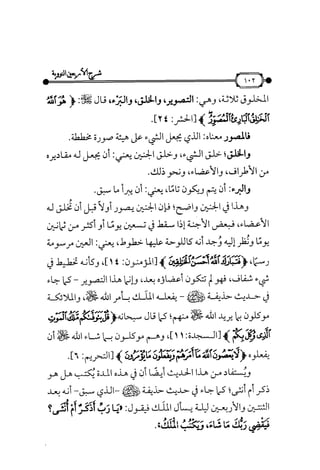 شرح الأربعين النووية
١٠٢
المخلوق ثلاثة، وهي: التصوير، والخلق، والبَرْء، قال ﷻ: ﴿هُوَ اللَّهُ
الْخَالِقُ الْبَارِئُ الْمُصَوِّرُ﴾ [الحشر: ٢٤].
فالمصور معناه: الذي يجعل الشيء على هيئة صورة مخططة.
والخلق: خلق الشيء، وخلق الجنين يعني: أن يجعل له مقاديره
من الأطراف، والأعضاء، ونحو ذلك.
والبرء: أن يتم ويكون تامًا، يعني: أن يبرأ ما سبق.
وهذا في الجنين واضح؛ فإن الجنين يصور أولًا قبل أن تُخلق له
الأعضاء، فبعض الأجنة إذا سقط في تسعين يومًا أو أكثر من ثمانين
يومًا ونُظر إليه وُجد أنه كاللوحة عليها خطوط، يعني: العين مرسومة
رسمًا، ﴿فَتَبَارَكَ اللَّهُ أَحْسَنُ الْخَالِقِينَ﴾ [المؤمنون: ١٤]، وكأنه تخطيط في
شيء شفاف، فهو لم تتكون أعضاؤه بعد، وإنما هذا التصوير - كما جاء
في حديث حذيفة ﷺ - يفعله الملَك بأمر الله ﷻ، والملائكة
موكلون بما يريد الله ﷻ منهم؛ كما قال سبحانه ﴿قُلْ يَتَوَفَّاكُم مَّلَكُ الْمَوْتِ
الَّذِي وُكِّلَ بِكُمْ﴾ [السجدة: ١١]، وهم موكلون بما شاء الله ﷻ أن
يفعلوه ﴿لَا يَعْصُونَ اللَّهَ مَا أَمَرَهُمْ وَيَفْعَلُونَ مَا يُؤْمَرُونَ﴾ [التحريم: ٦].
ويُستفاد من هذا الحديث أيضًا أن في هذه المدة يُكتب هل هو
ذكر أم أنثى؛ كما جاء في حديث حذيفة ﷺ -الذي سبق- أنه بعد
الثنتين والأربعين ليلة يسأل الملَك فيقول: «يَا رَبِّ أَذَكَرٌ أَمْ أُنْثَى؟
فَيَقْضِي رَبُّكَ مَا شَاءَ، وَيَكْتُبُ الْمَلَكُ».